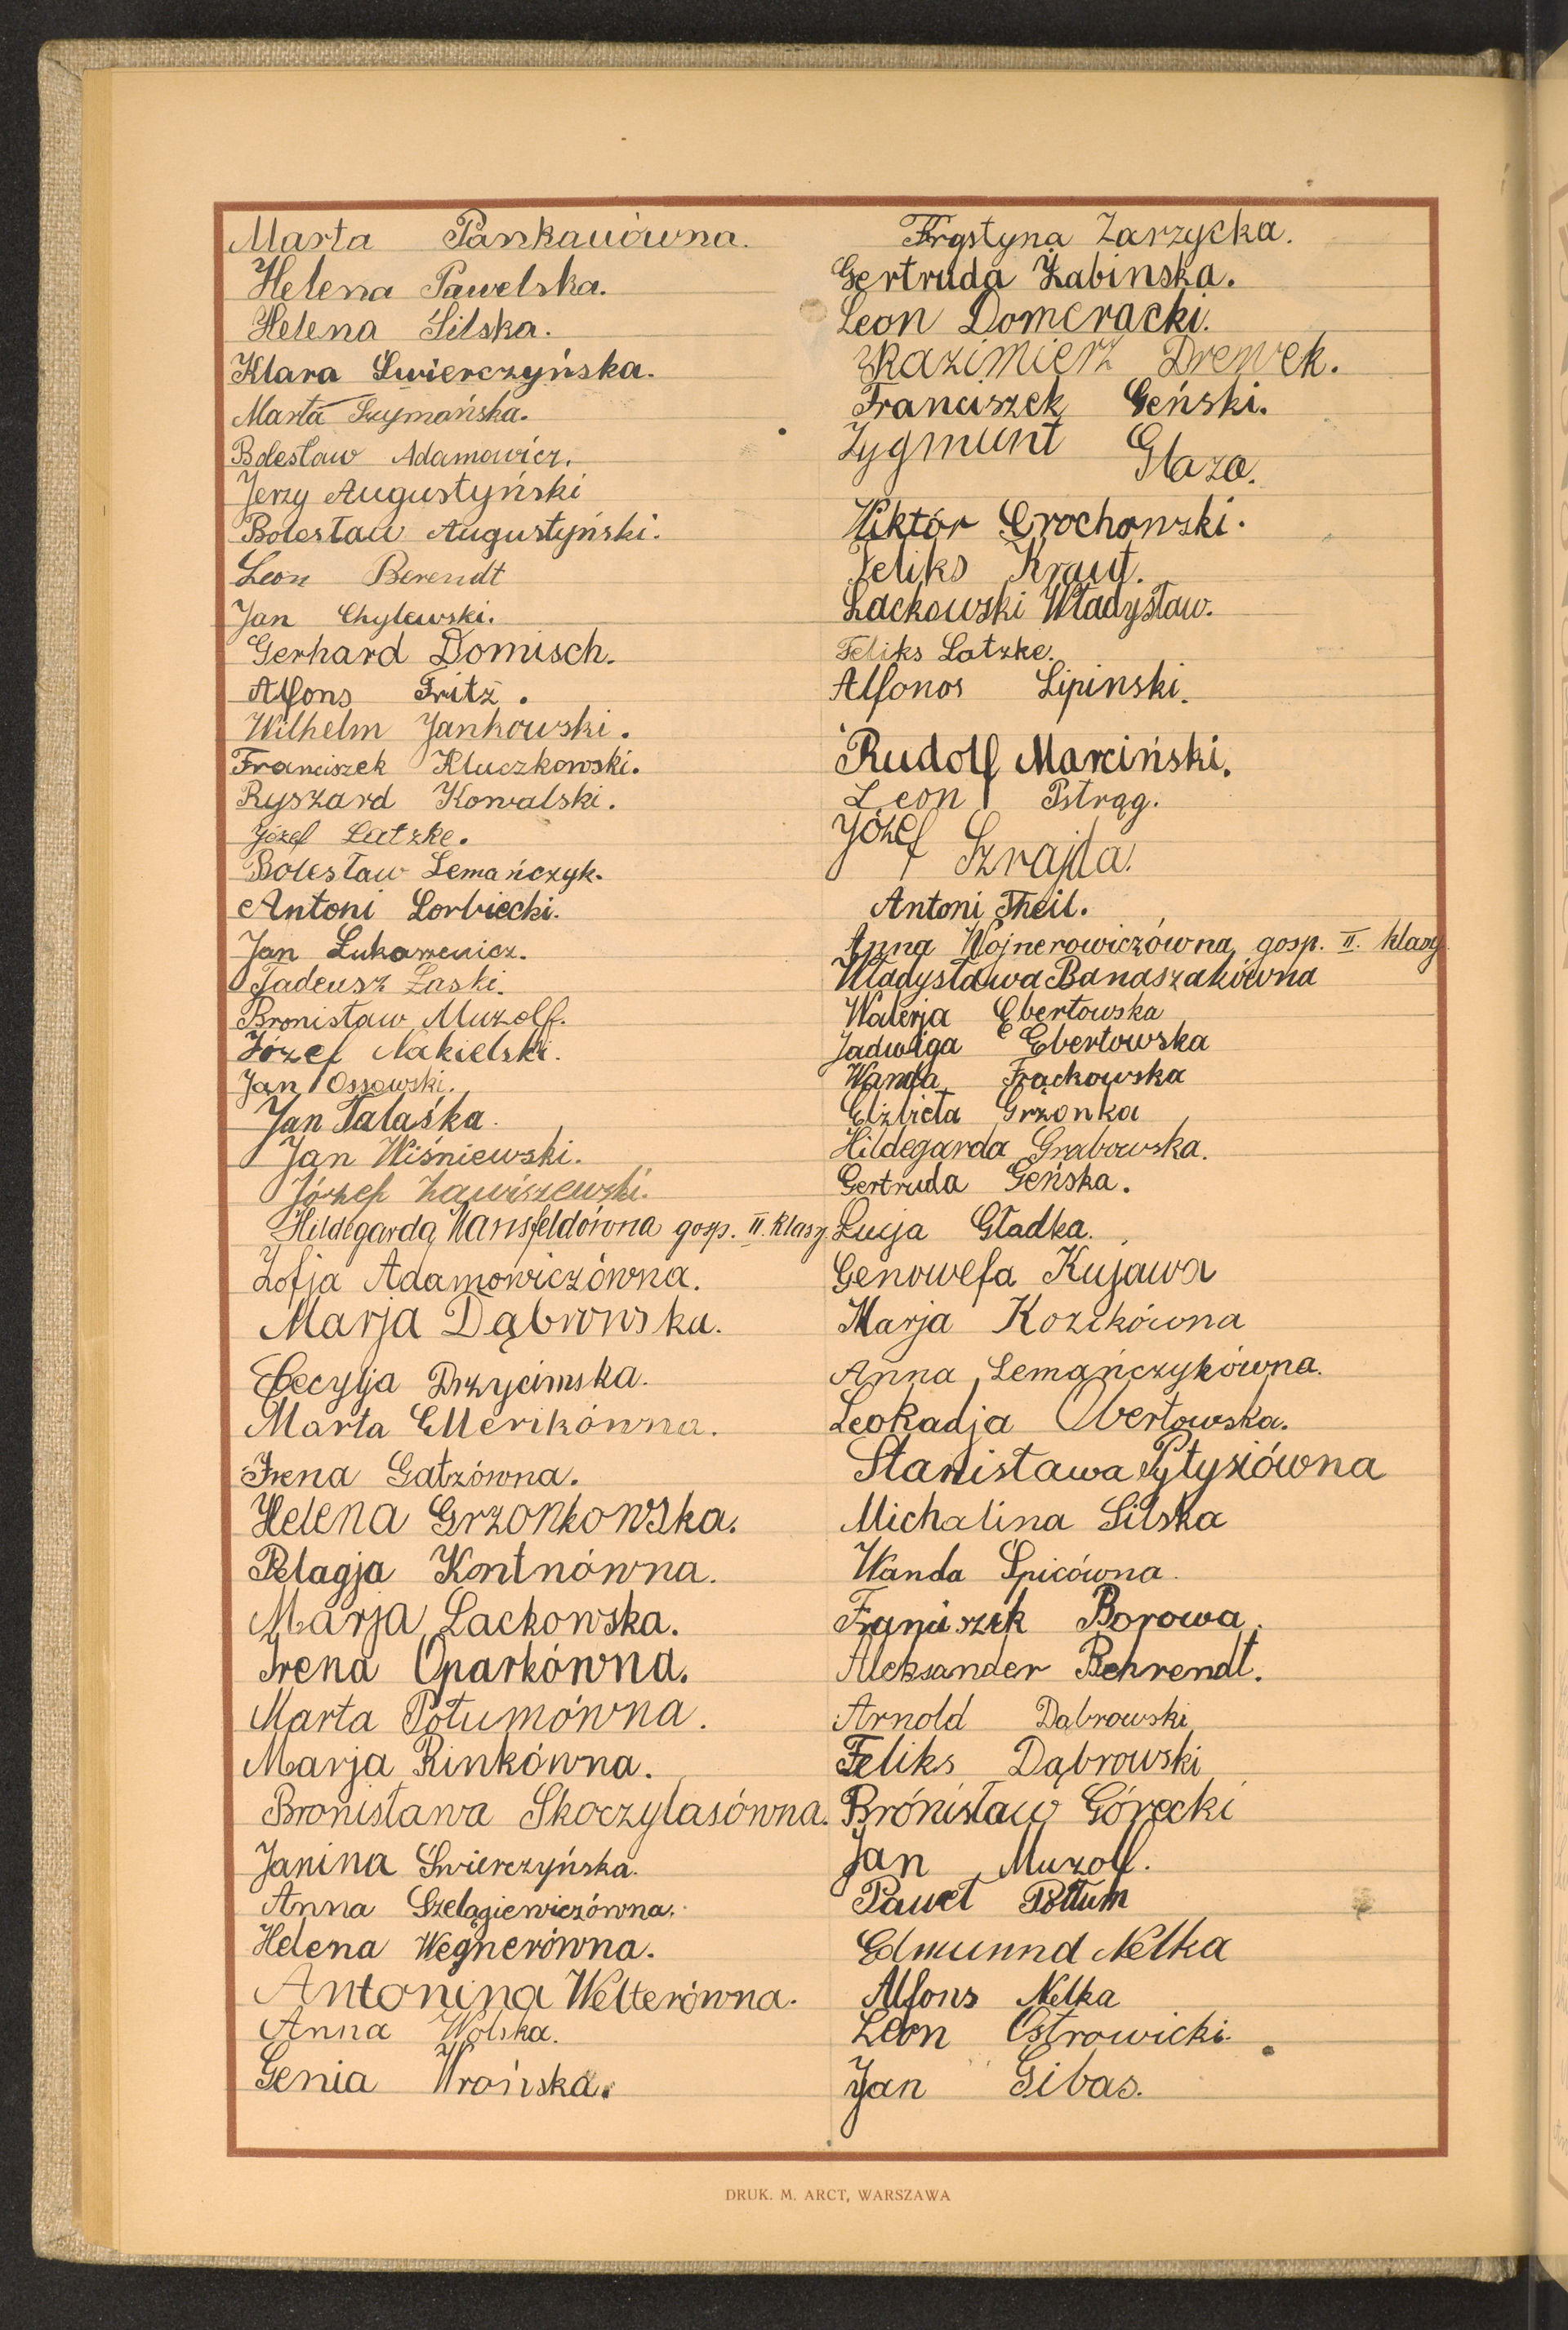 Marta Pankauówna.
Helena Pawelska.
Helena Silska.
Klara Swierczyńska.
Marta Szymańska.
Bolesław Adamowicz.
Jerzy Augustyński
Bolesław Augustyński.
Leon Berendt
Jan Chylewski.
Gerhard Domisch.
Alfons Fritz.
Wilhelm Jankowski.
Franciszek Kluczkowski.
Ryszard Kowalski.
Józef Latzke.
Bolesław Lemańczyk.
Antoni Lorbiecki.
Jan Lukaszewicz.
Tadeusz Łaski.
Bronisław Muzolf.
Józef Nakielski.
Jan Ossowski.
Jan Talaśka.
Jan Wiśniewski.
Józef Zawiszewski.
Hildegarda Mansfeldówna gosp. II. klasy.
Zofja Adamowiczówna.
Marja Dąbrowska.
Cecylja Drzycimska.
Marta Ellerikówna.
Irena Gatzówna.
Helena Grzonkowska.
Pelagja Kontnówna.
Marja Lackowska.
Irena Oparkówna.
Marta Połumówna.
Marja Rinkówna.
Bronisława Skoczylasówna.
Janina Swierczyńska.
Anna Szelągiewiczówna.
Helena Wegnerówna.
Antonina Welterówna.
Anna Wolska.
Genia Wrońska.
Krystyna Zarzycka.
Gertruda Żabinska.
Leon Domeracki.
Kazimierz Drewek.
Franciszek Geński.
Zygmunt Głaza.
Wiktór Grochowski.
Feliks Kraut.
Lackowski Władysław.
Feliks Latzke.
Alfonos Lipinski.
Rudolf Marciński.
Leon Pstrąg.
Józef Szrajda.
Antoni Theil.
Anna Wojnerowiczówna, gosp. II. klasy
Władysława Banaszakówna
Walerja Ebertowska
Jadwiga Ebertowska
Wanda Frąckowska
Elżbieta Grzonka
Hildegarda Grabowska.
Gertruda Geńska.
Lucja Gładka.
Genowefa Kujawa
Marja Kozikówna
Anna Lemańczykówna.
Leokadja Obertowska.
Stanisława Pytysiówna
Michalina Silska
Wanda Spicówna.
Franciszek Borowa.
Aleksander Behrendt.
Arnold Dąbrowski
Feliks Dąbrowski
Brónisław Górecki
Jan Muzolf.
Paweł Połlum
Edmunnd Nelka
Alfons Nelka
Leon Ostrowicki.
Jan Gibas.
DRUK. M. ARCT, WARSZAWA